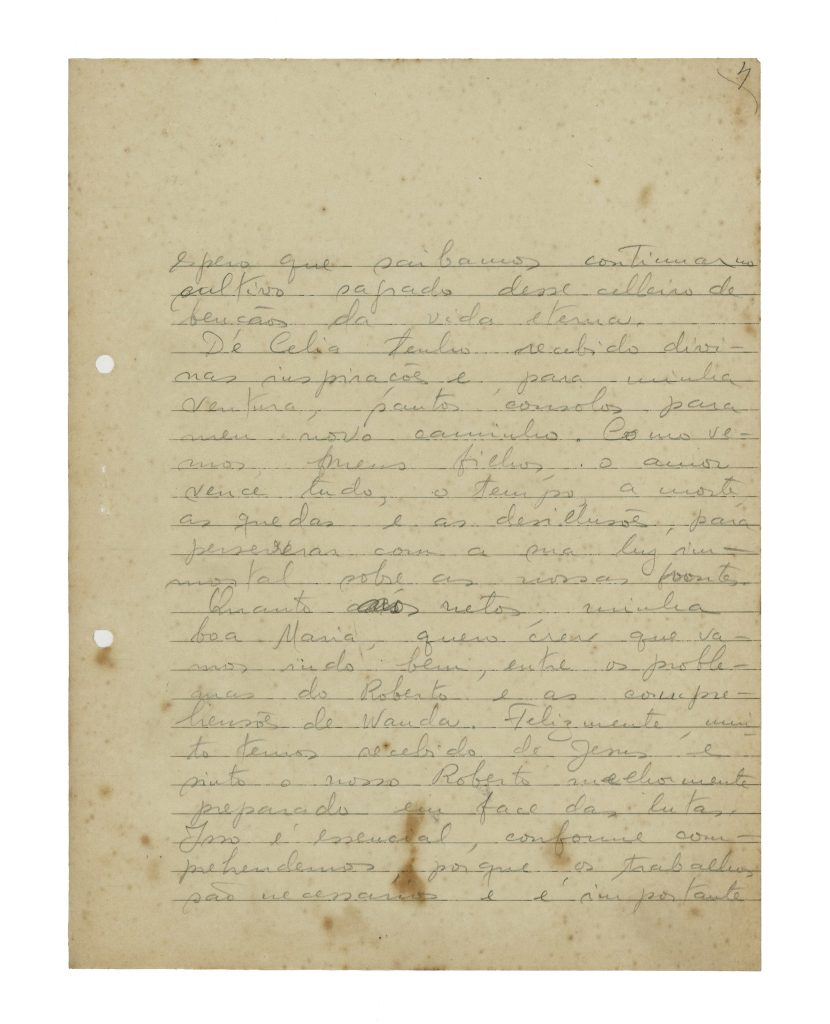 4
espero que saibamos continuar no
cultivo sagrado desse celleiro de
bençãos da vida eterna.
De Celia tenho recebido divi-
nas inspirações e para minha
ventura, santos consolos para
meu novo caminho. Como ve-
mos, meus filhos, o amor
vence tudo, o tempo, a morte
as quedas e as desillusões, para
perseverar com a sua luz im-
mortal sobre as nossas frontes.
Quanto aos netos, minha
boa Maria, quero crer que va-
mos indo bem, entre os proble-
mas do Roberto e as compre-
hensões de Wanda. Felizmente, mui-
to temos recebido de Jesus e
sinto o nosso Roberto melhormente
preparado em face das lutas.
Isso é essencial, conforme com-
prehendemos, porque os trabalhos
são necessarios e é importante